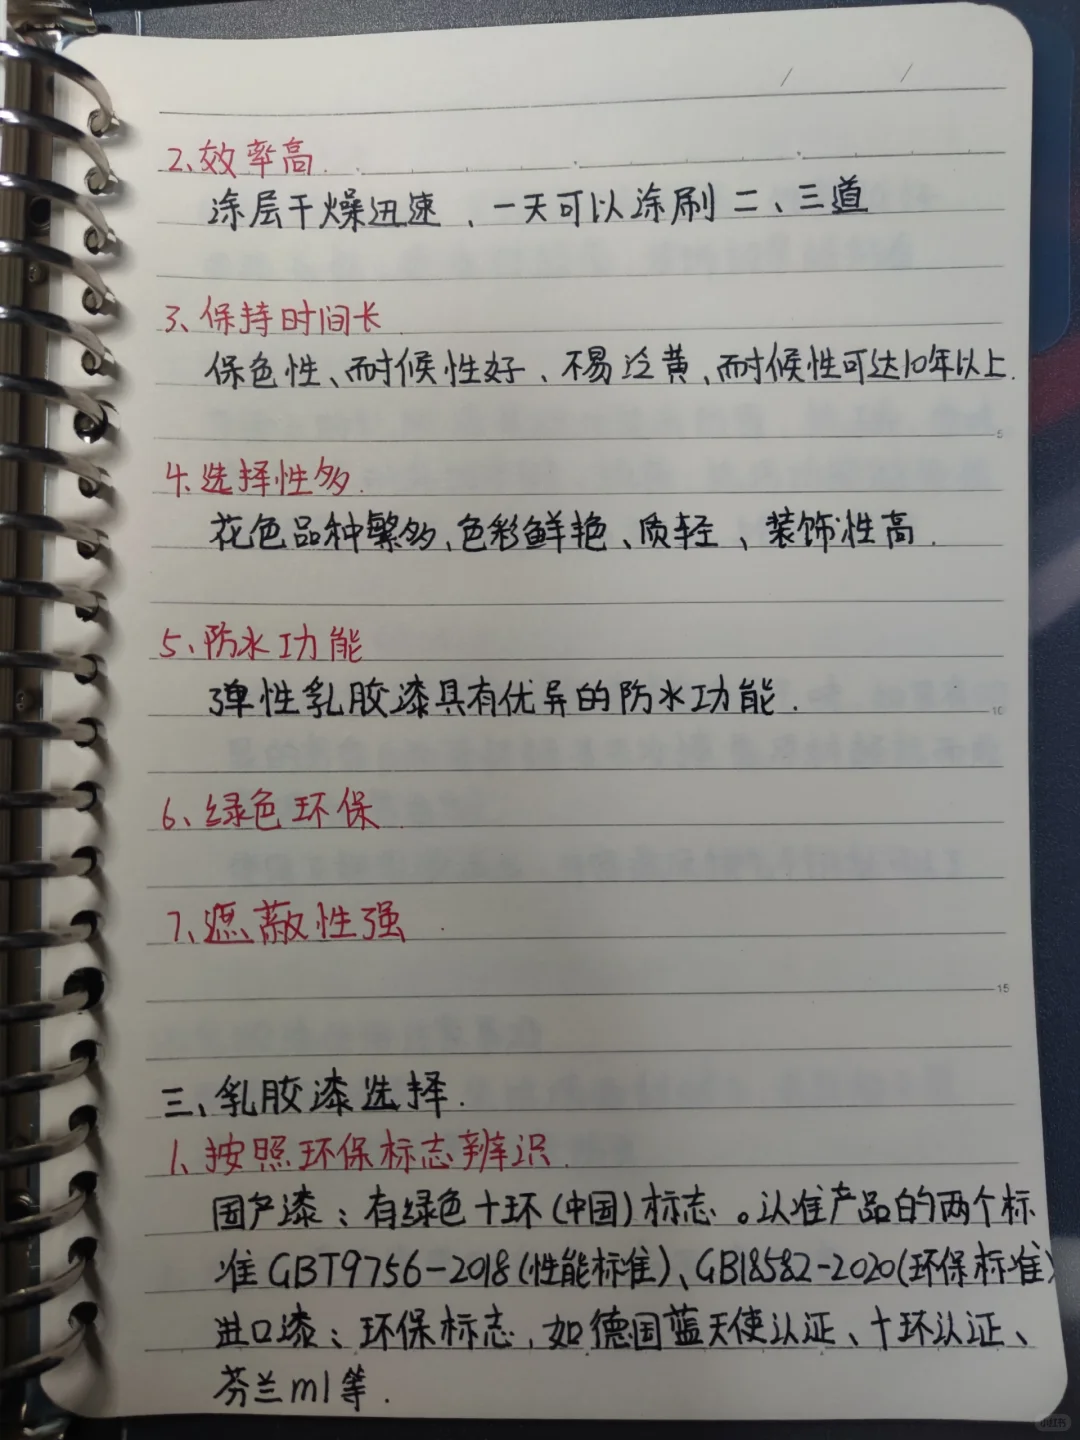 2、效率高.
涂层干燥迅速、一天可以涂刷二、三道
3、保持时间长.
保色性、耐候性好、不易泛黄、耐候性可达10年以上.
5
4.选择性多.
花色品种繁多、色彩鲜艳、质轻、装饰性高.
5、防水功能
弹性乳胶漆具有优异的防水功能.
10
6、绿色环保.
7、遮蔽性强.
15
三、乳胶漆选择.
1、按照环保标志辨识.
国产漆：有绿色十环(中国)标志。认准产品的两个标
准GBT9756-2018(性能标准)、GB18582-2020(环保标准)
进口漆：环保标志,如德国蓝天使认证、十环认证、
芬兰m1等.
小红书